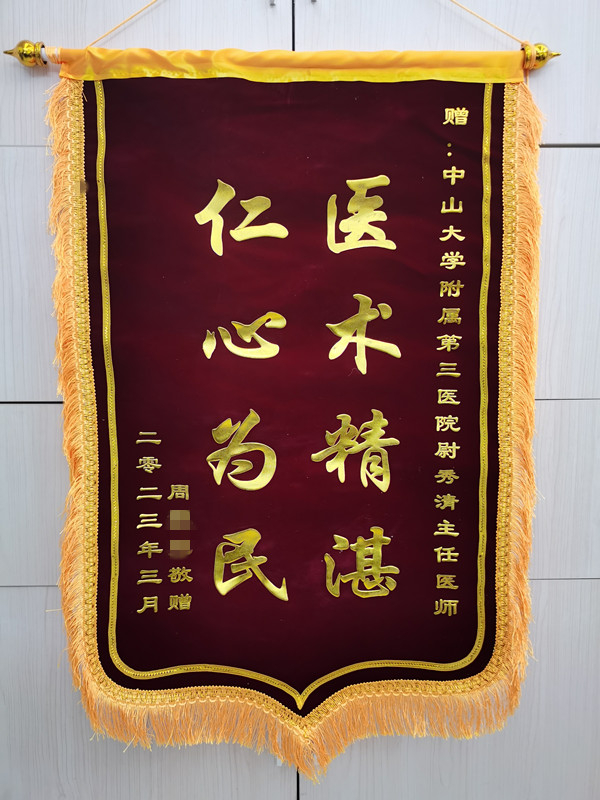 赠：中山大学附属第三医院尉秀清主任医师
医术精湛
仁心为民
周
敬赠
二零二三年三月